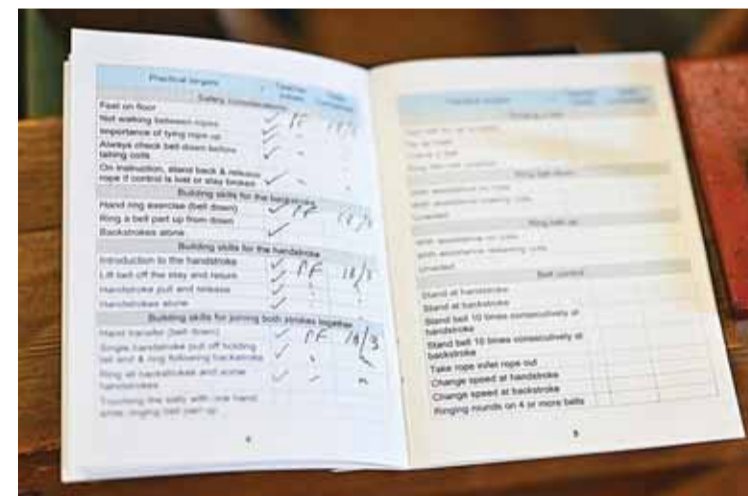 Practical targets Teacher initials Date completed
Safety considerations
Feet on floor ✓ PF 18/3
Not walking between ropes ✓
Importance of tying rope up ✓
Always check bell down before ✓
taking coils
On instruction, stand back & release ✓
rope if control is lost or stay broken
Building skills for the backstroke
Hand ring exercise (bell down) ✓ PF 18/3
Ring a bell part up from down ✓
Backstrokes alone ✓
Building skills for the handstroke
Introduction to the handstroke ✓ PF 18/3
Lift bell off the stay and return ✓
Handstroke pull and release ✓
Handstrokes alone ✓
Building skills for joining both strokes together
Hand transfer (bell down) ✓ PF 18/3
Single handstroke pull off holding ✓
tail end & ring following backstroke
Ring all backstrokes and some ✓
handstrokes
Touching the sally with one hand
while ringing bell part up
4
Practical targets
Ring bell down
With assistance no coils
With assistance making coils
Unaided
Ring bell up
With assistance no coils
With assistance releasing coils
Unaided
Bell control
Stand at handstroke
Stand at backstroke
Stand bell 10 times consecutively at
handstroke
Stand bell 10 times consecutively at
backstroke
Take rope in/let rope out
Change speed at handstroke
Change speed at backstroke
Ringing rounds on 4 or more bells
5